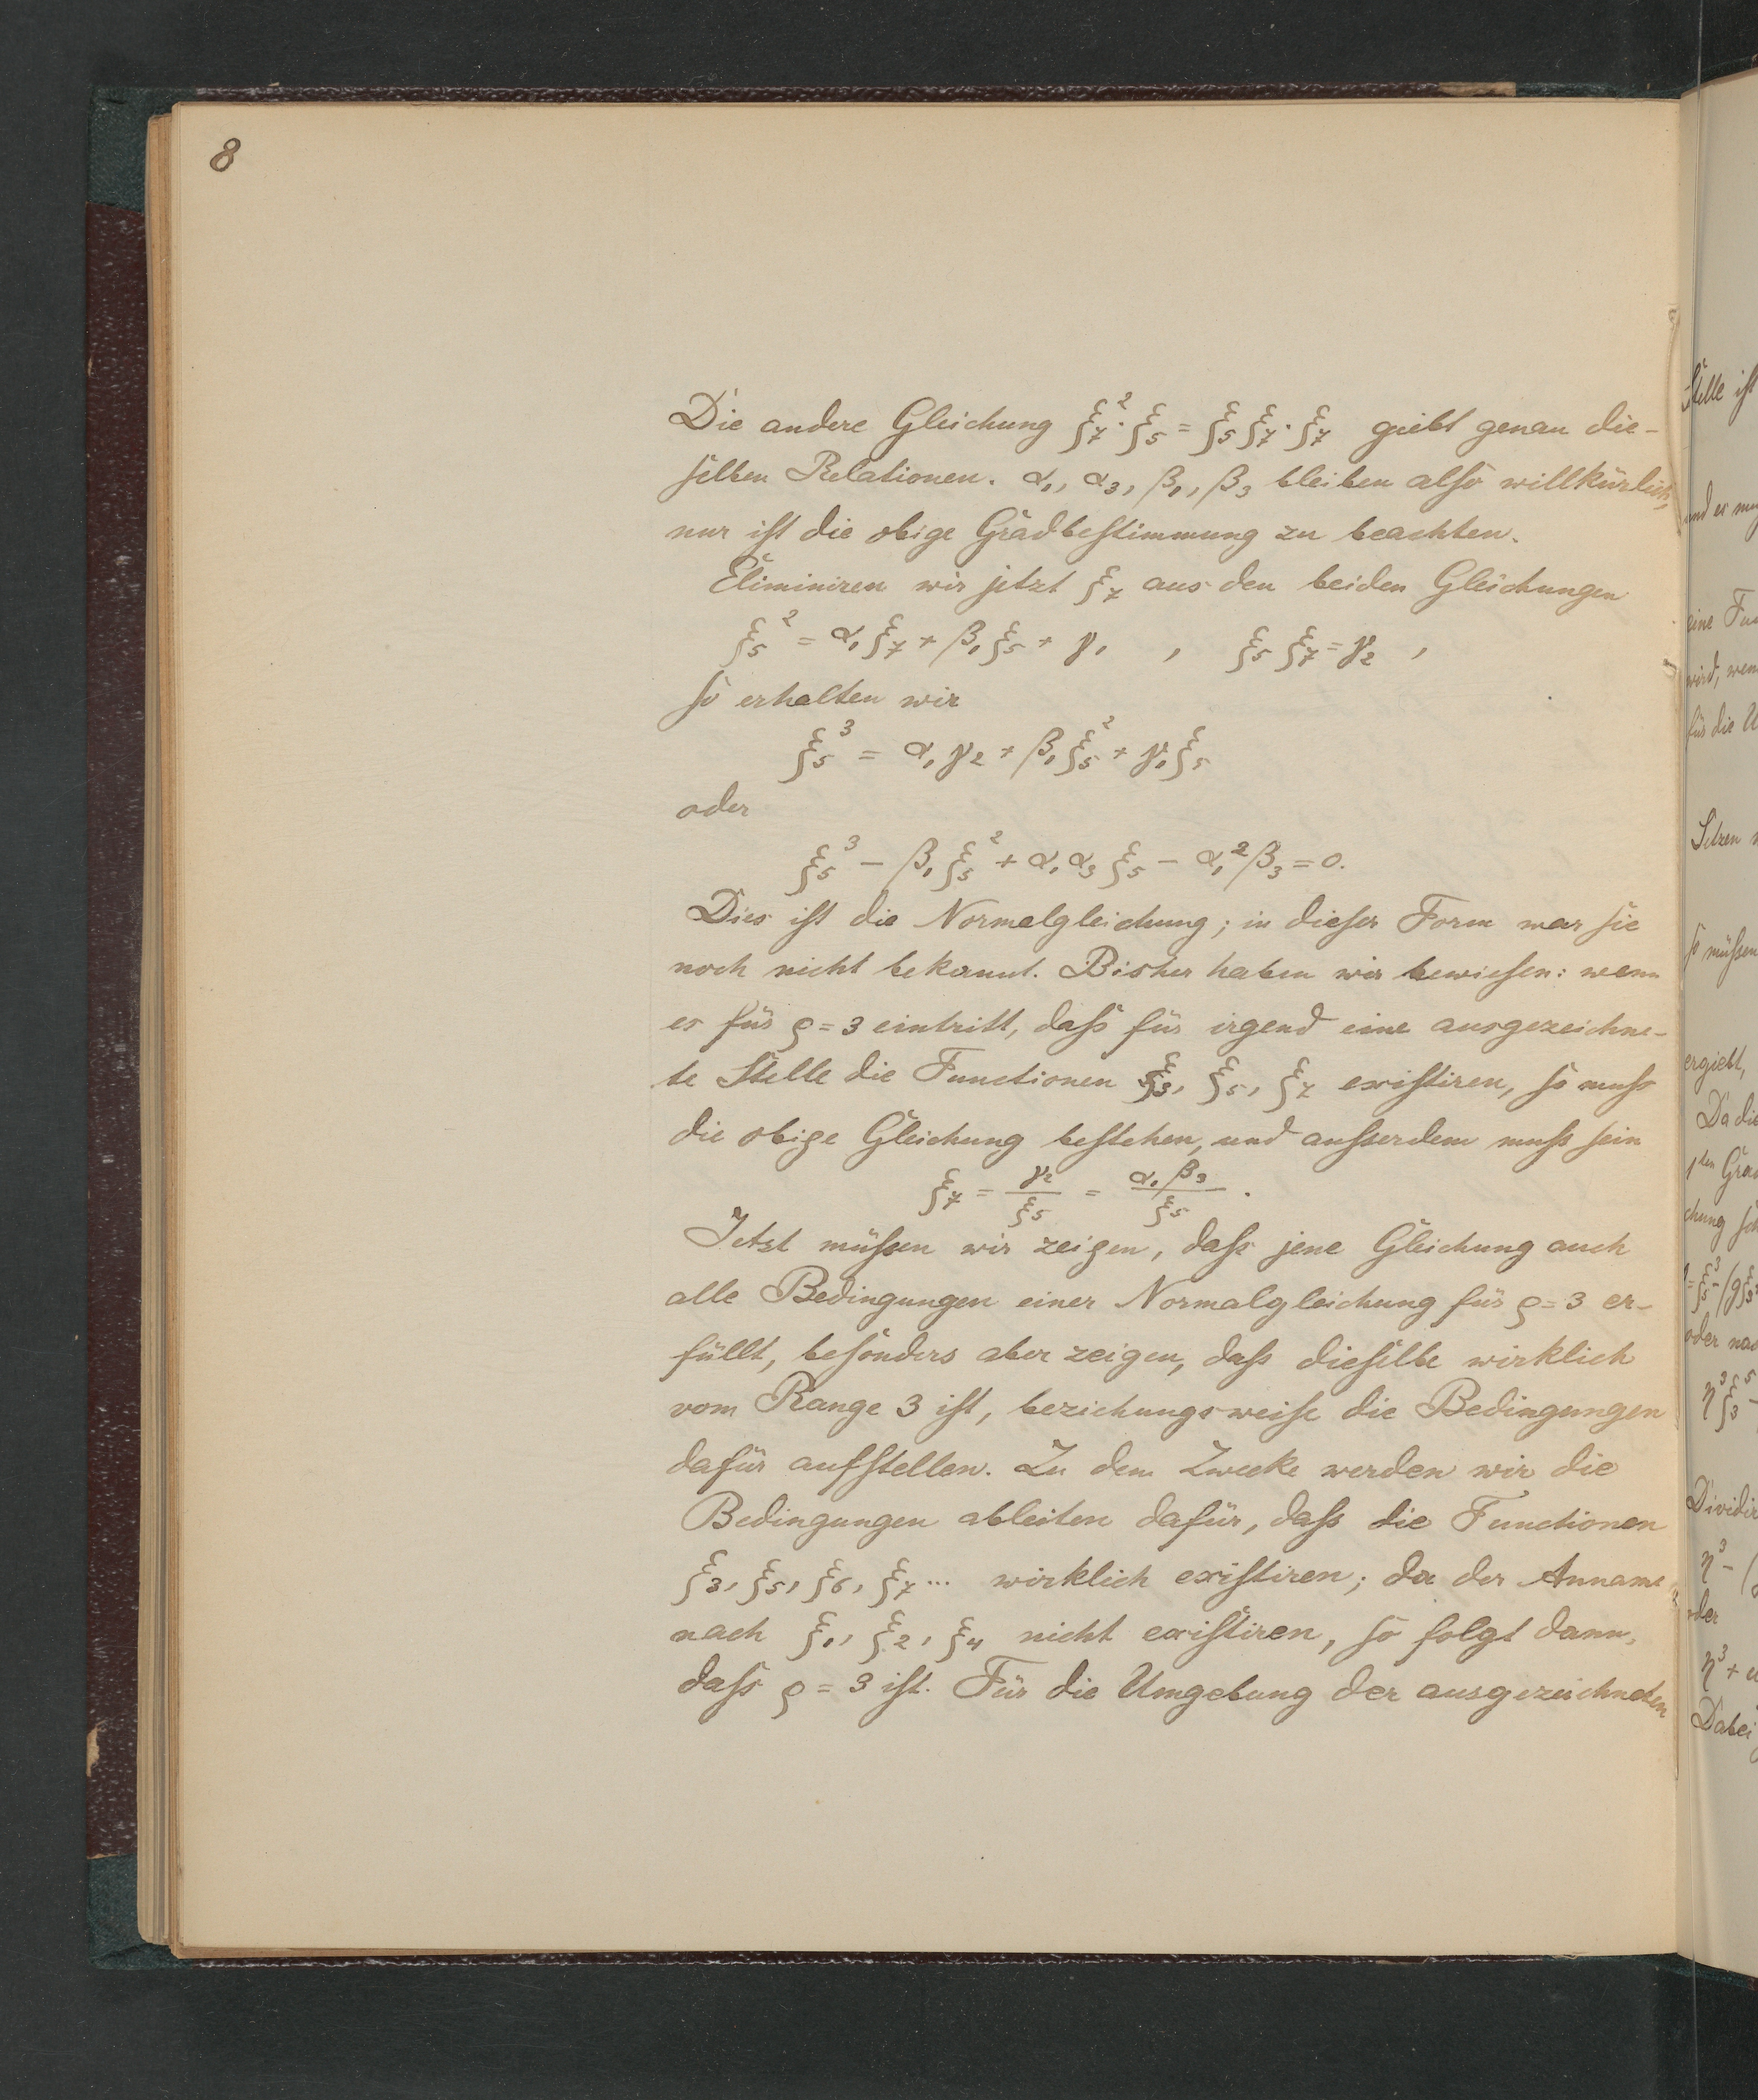 8
Die andere Gleichung ξ₇²·ξ₅ = ξ₅ξ₇·ξ₇ giebt genau die-
selben Relationen. α₁, α₃, β₁, β₃ bleiben also willkürlich,
nur ist die obige Gradbestimmung zu beachten.
Eliminiren wir jetzt ξ₇ aus den beiden Gleichungen
ξ₅² = α₁ξ₇ + β₁ξ₅ + γ₁ , ξ₅ξ₇ = γ₂ ,
so erhalten wir
ξ₅³ = α₁γ₂ + β₁ξ₅² + γ₁ξ₅
oder
ξ₅³ − β₁ξ₅² + α₁α₃ξ₅ − α₁²β₃ = 0.
Dies ist die Normalgleichung; in dieser Form war sie
noch nicht bekannt. Bisher haben wir bewiesen: wenn
es für ρ = 3 eintritt, dass für irgend eine ausgezeichne-
te Stelle die Functionen ξ₃, ξ₅, ξ₇ existiren, so muss
die obige Gleichung bestehen, und ausserdem muss sein
ξ₇ = γ₂/ξ₅ = α₁β₃/ξ₅ .
Jetzt müssen wir zeigen, dass jene Gleichung auch
alle Bedingungen einer Normalgleichung für ρ = 3 er-
füllt, besonders aber zeigen, dass dieselbe wirklich
vom Range 3 ist, beziehungsweise die Bedingungen
dafür aufstellen. Zu dem Zwecke werden wir die
Bedingungen ableiten dafür, dass die Functionen
ξ₃, ξ₅, ξ₆, ξ₇ ... wirklich existiren; da der Anname
nach ξ₁, ξ₂, ξ₄ nicht existiren, so folgt dann,
dass ρ = 3 ist. Für die Umgebung der ausgezeichneten
Stelle ist
und es
eine
wird, wen
für die
Setzen
so müssen
ergiebt,
Da die
1ten Grad
chung
oder nac
Dividir
oder
Dabei